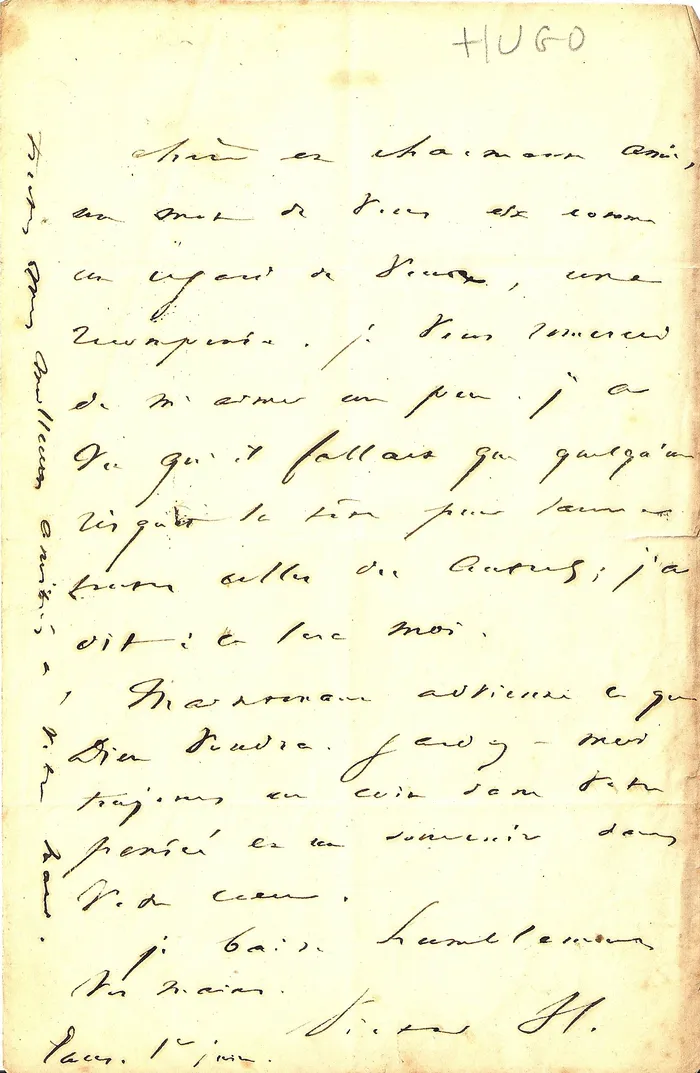 HUGO
chère et charmante amie,
un mot de vous est comme
un regard de Vénus, une
récompense. je vous remercie
de m'aimer un peu. j'ai
vu qu'il fallait que quelqu'un
risquât la tête pour
toutes celles des autres ; j'ai
dit : ce sera moi.
Maintenant advienne ce que
Dieu voudra. gardez-moi
toujours un coin dans votre
pensée et un souvenir dans
votre cœur.
je baise humblement
vos mains.
Victor H.
Paris. 1er juin.
toutes mes meilleures amitiés à votre mari.